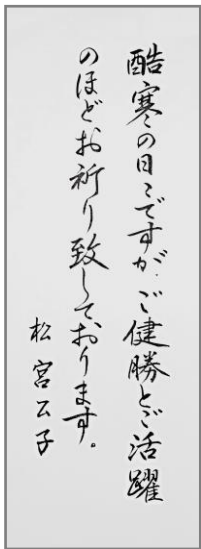 酷寒の日々ですが、ご健勝とご活躍
のほどお祈り致しております。
松宮公子